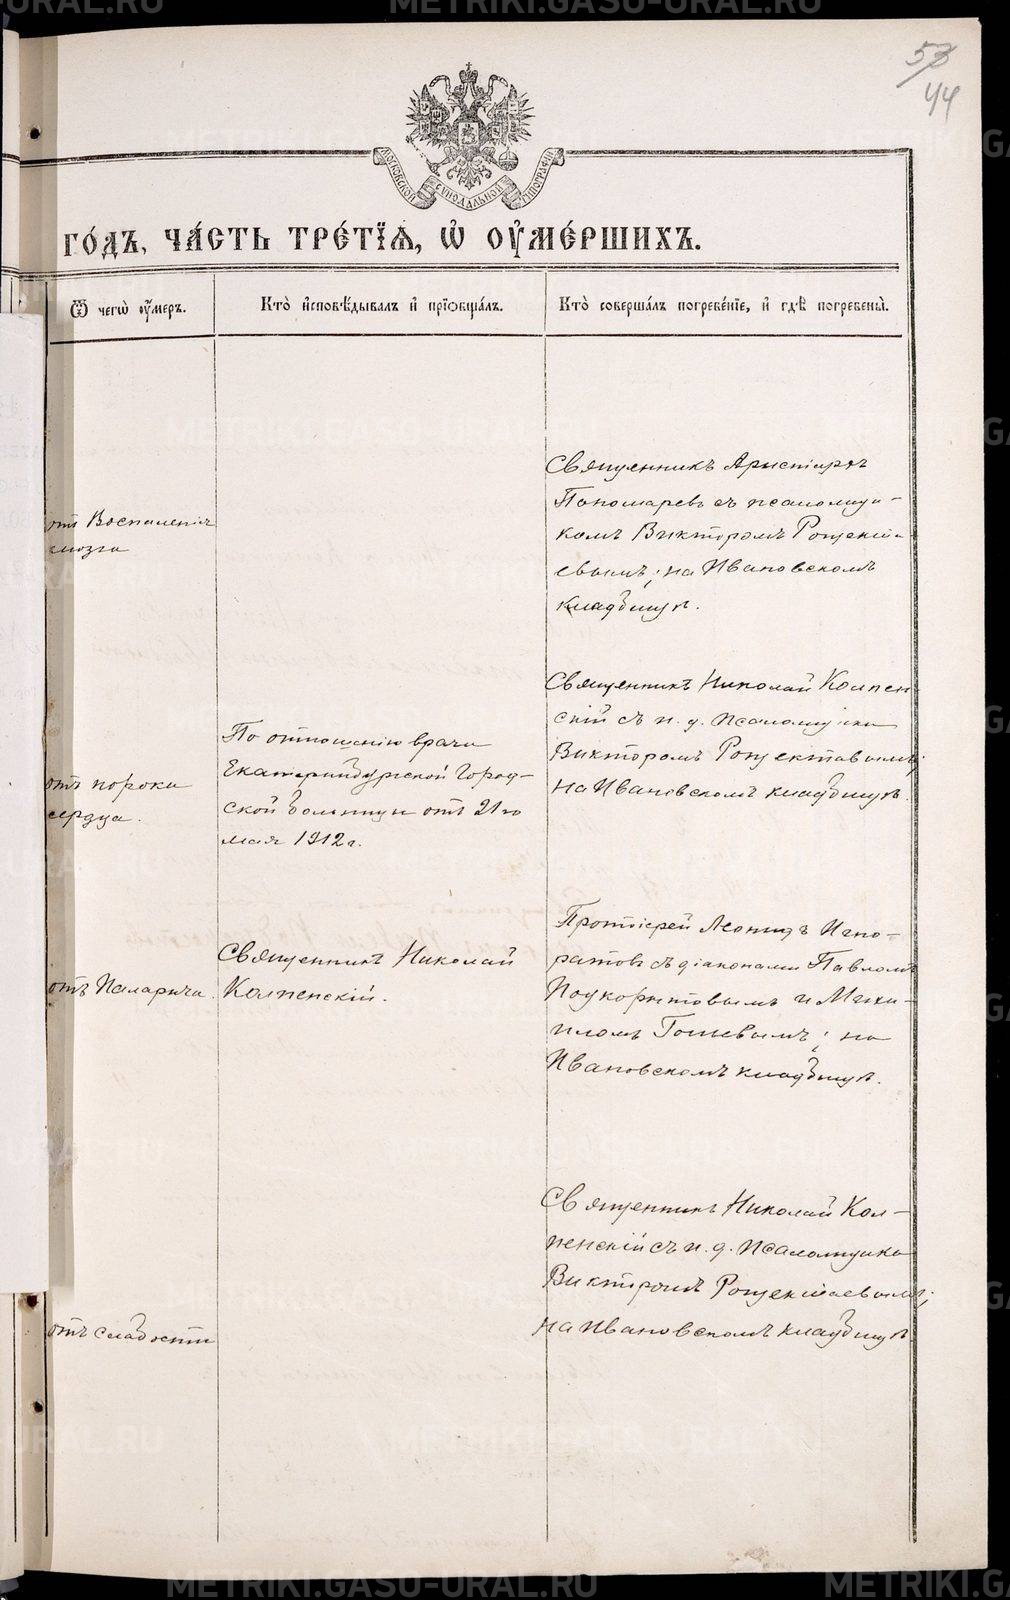 53
44
МОСКОВСКОЙ СѴНОДАЛЬНОЙ ТИПОГРАФІИ
ГО́ДЪ, ЧА́СТЬ ТРЕ́ТІЯ, Ѡ҆ ОУ҆МЕ́РШИХЪ.
Ѿ чегѡ̀ оу҆́меръ.
Кто̀ и҆сповѣ́дывалъ и҆ прїѡбща́лъ.
Кто̀ соверша́лъ погребе́нїе, и҆ гдѣ̀ погребены̀.
отъ Воспаленія
мозга
Священникъ Аристархъ
Пономаревъ съ псаломщи-
комъ Викторомъ
на Ивановскомъ
кладбищѣ.
отъ порока
сердца.
По отношенію врача
Екатеринбургской Город-
ской больницы отъ 21го
мая 1912 г.
Священникъ Николай Колпен-
скій съ и. д. псаломщика
Викторомъ
на Ивановскомъ кладбищѣ.
отъ Паралича.
Священникъ Николай
Колпенскій.
Протоіерей Леонидъ Игно-
ратовъ съ діаконами Павломъ
Подкорытовымъ и Миха-
иломъ на
Ивановскомъ кладбищѣ.
отъ слабости
Священникъ Николай Кол-
пенскій съ и. д. псаломщика
Викторомъ
на Ивановскомъ кладбищѣ.
METRIKI.GASO-URAL.RU